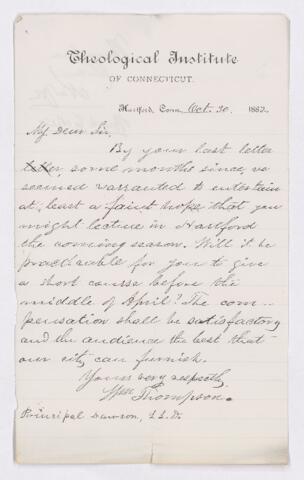 Theological Institute
OF CONNECTICUT.
Hartford, Conn. Oct. 20, 1882.
My Dear Sir,
By your last letter
some months since, we
seemed warranted to entertain
at least a faint hope that you
might lecture in Hartford
the coming season. Will it be
practicable for you to give
a short course before the
middle of April? The com-
pensation shall be satisfactory
and the audience the best that
our city can furnish.
Yours very respectly,
Wm Thompson.
Principal Dawson, LL.D.